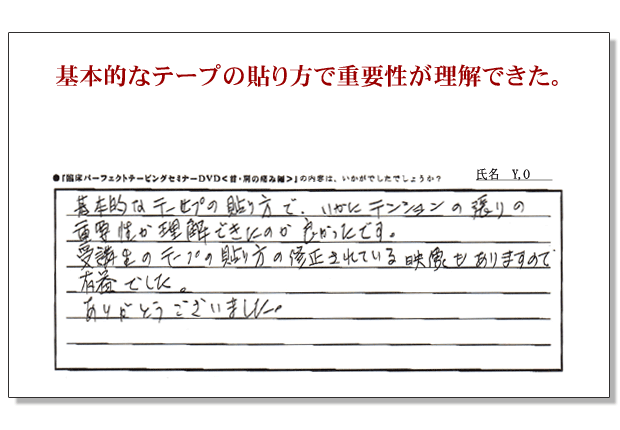 基本的なテープの貼り方で重要性が理解できた。
●『臨床パーフェクトテーピングセミナーDVD<首・肩の痛み編>』の内容は、いかがでしたでしょうか?
氏名 Y,O
基本的なテープの貼り方で、いかにテンションの張りの
重要性が理解できたのが良かったです。
受講生のテープの貼り方の修正されている映像もありますので
有益でした。
ありがとうございました。